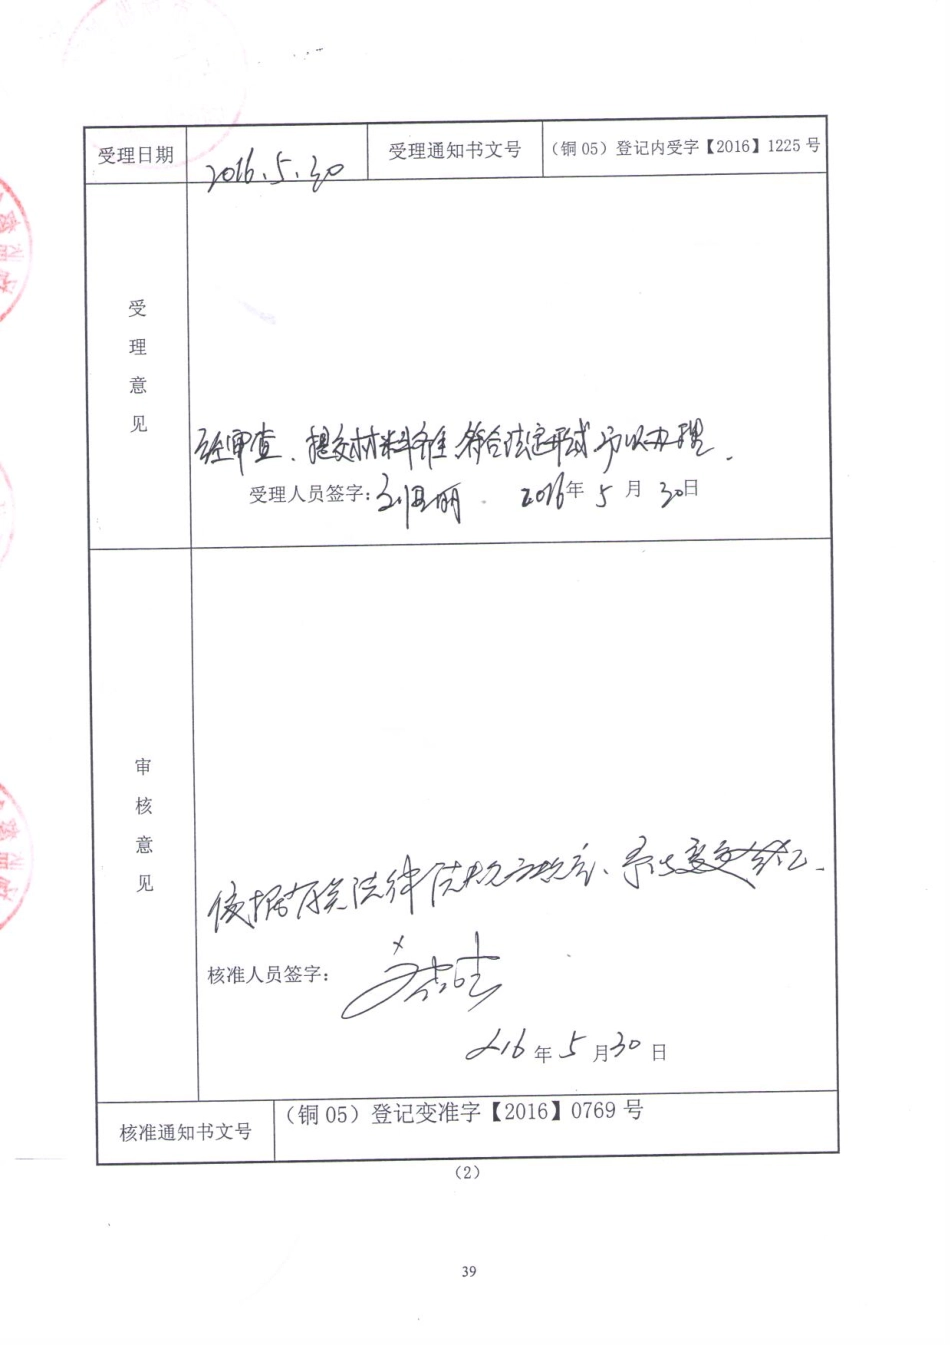 受理日期 2016.5.30 受理通知书文号 （铜 05）登记内受字【2016】1225 号
受理意见
经审查、提交材料齐全 符合法定形式 予以办理.
受理人员签字: 2016年 5 月 30日
审核意见
依据有关法律法规之规定、予以变更登记.
核准人员签字:
2016 年 5 月 30 日
核准通知书文号 （铜 05）登记变准字【2016】0769 号
（2）
39